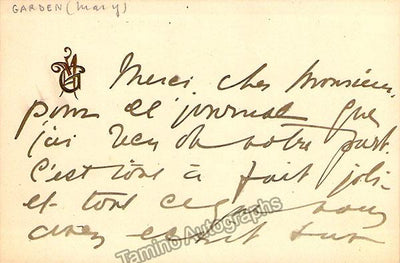 GARDEN (Mary)
MG
Merci, cher Monsieur,
pour le journal que
j'ai reçu de votre part.
C'est tout à fait joli
et tout ce que vous
avez écrit sur
Tamino Autographs